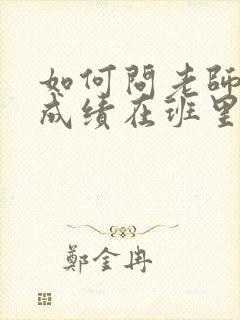 如何問老師
成績在班里
鄭金冉